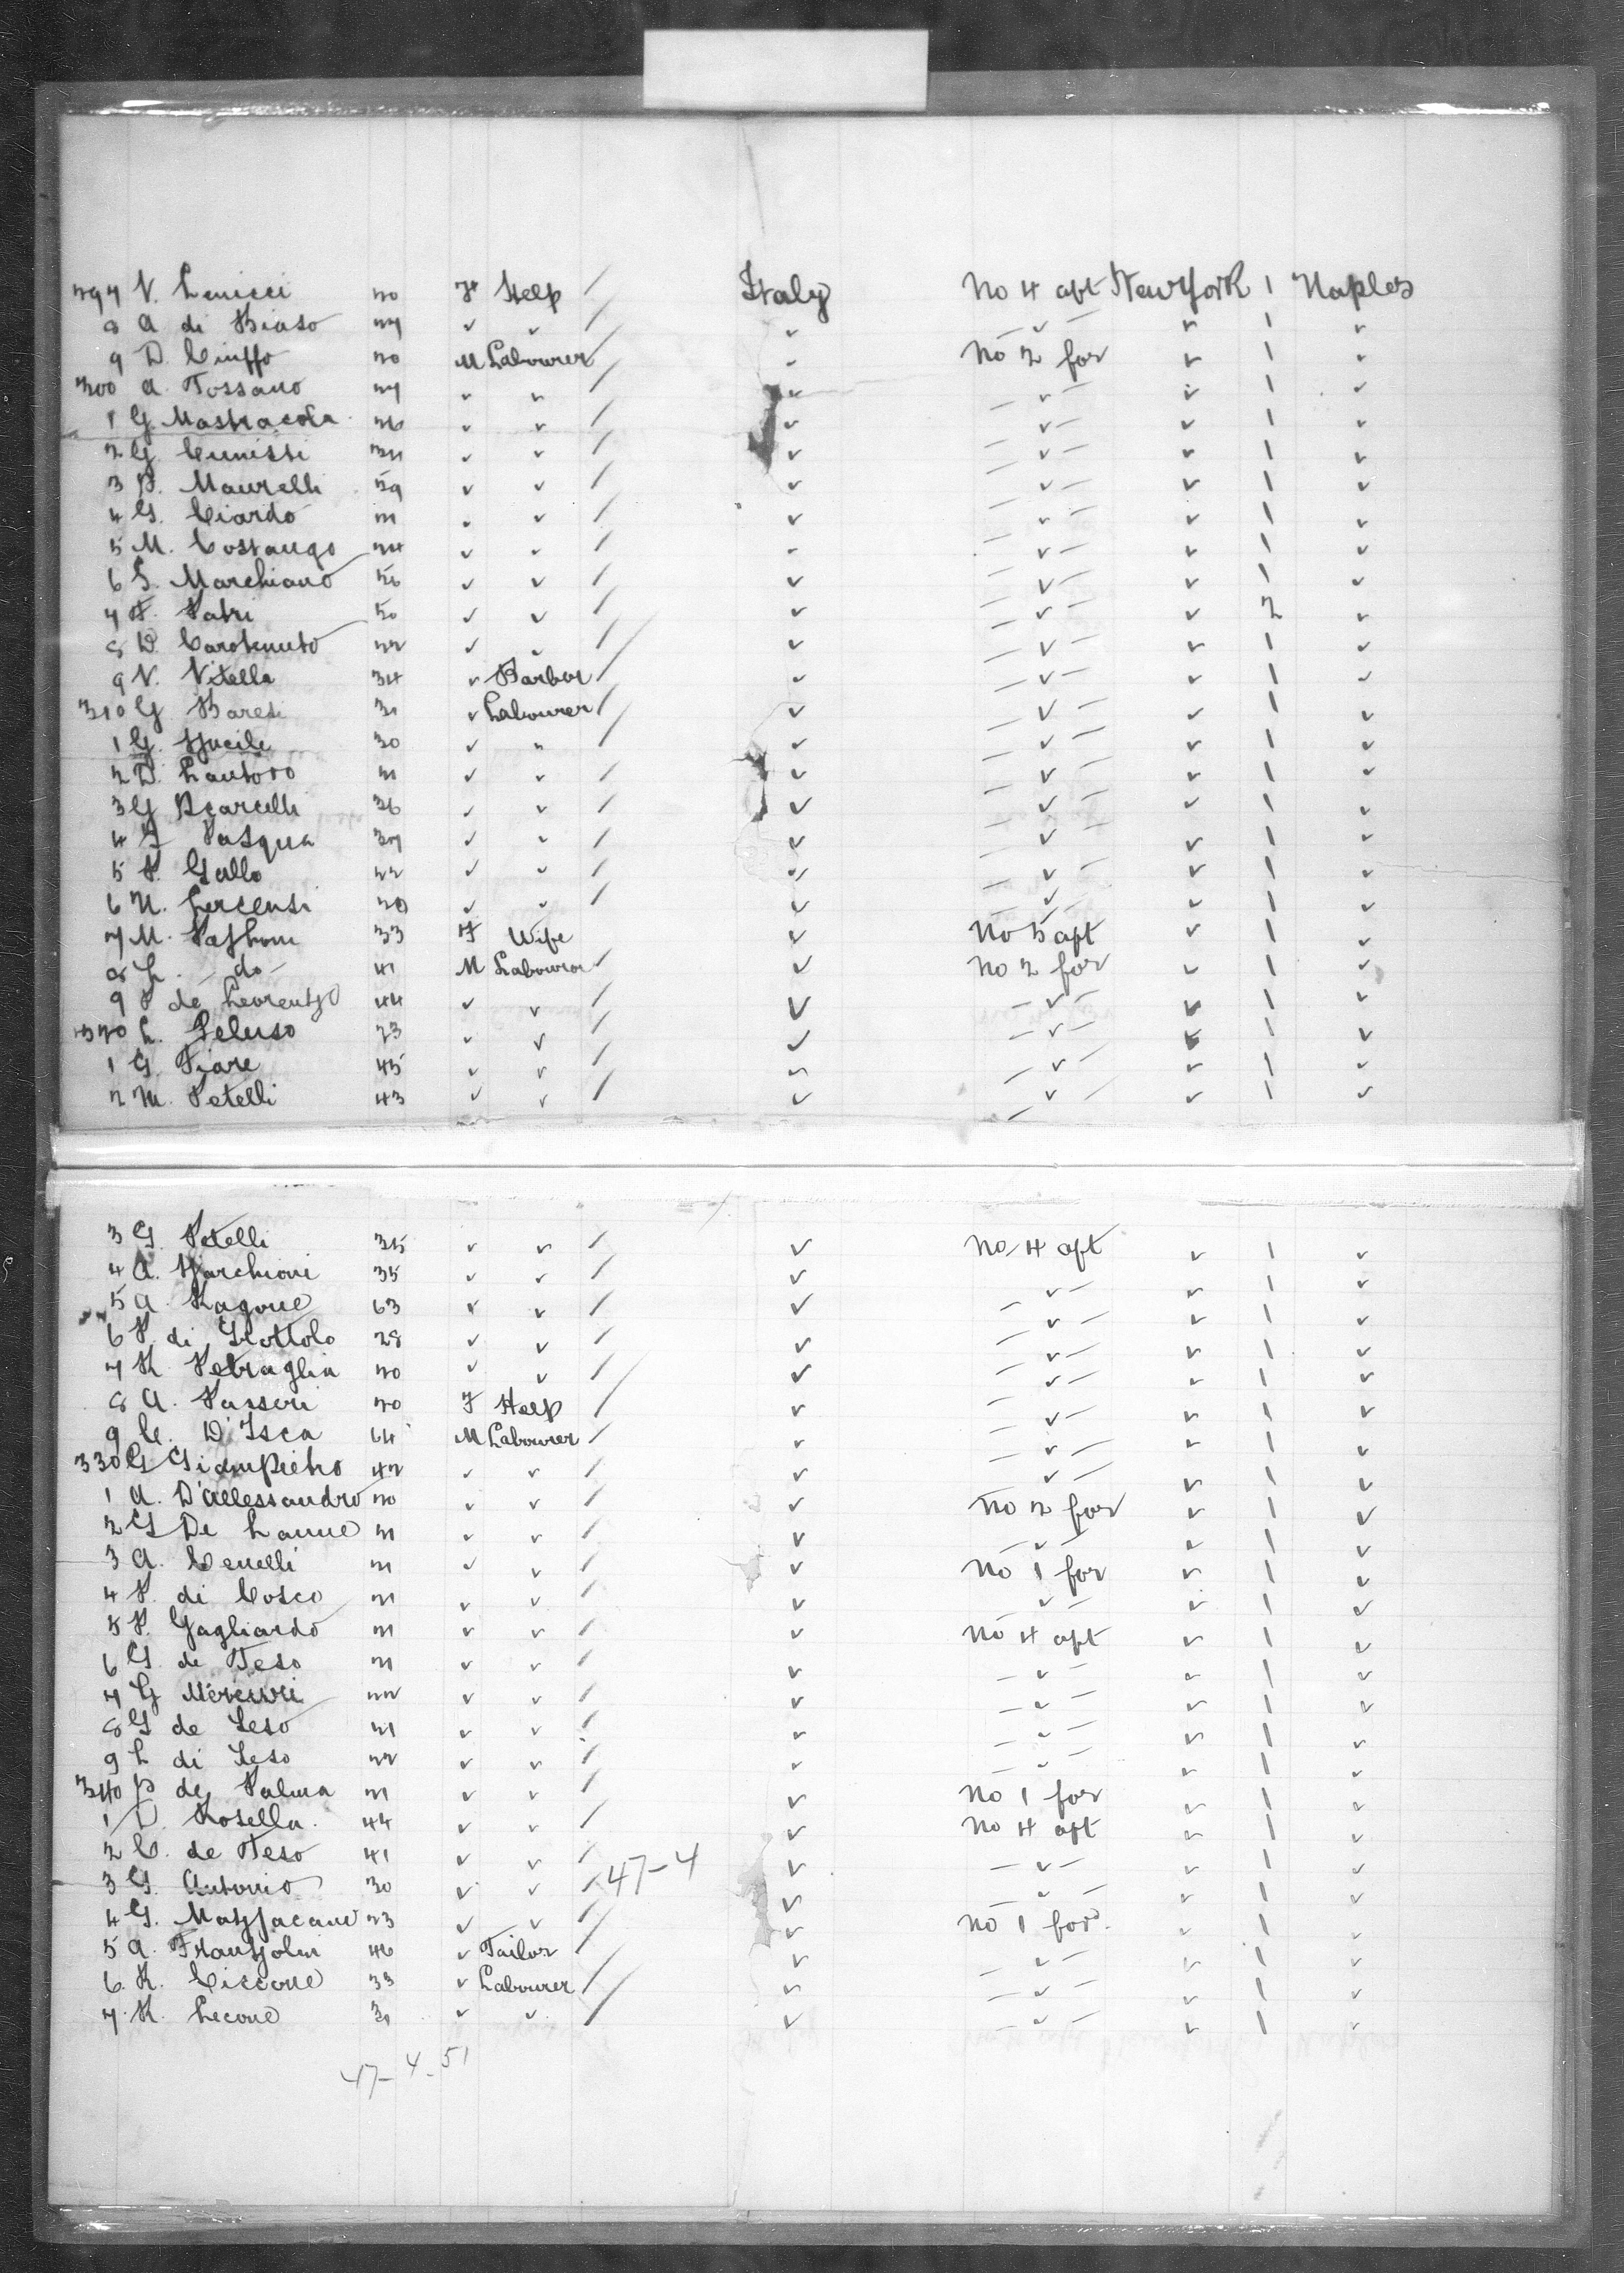 297 V. Lenicci 20 F Help / Italy No 4 aft New York 1 Naples
8 A di Biaso 27 ✓ ✓ / ✓ — ✓ — ✓ 1 ✓
9 D. Ciuffo 20 M Labourer / ✓ No 2 for ✓ 1 ✓
300 A. Tossano 27 ✓ ✓ / ✓ — ✓ — ✓ 1 ✓
1 G Mastracola 26 ✓ ✓ / ✓ — ✓ — ✓ 1 ✓
2 G. ✓ ✓ / ✓ — ✓ — ✓ 1 ✓
3 P. Maurelli 59 ✓ ✓ / ✓ — ✓ — ✓ 1 ✓
4 G. Ciardo 21 ✓ ✓ / ✓ — ✓ — ✓ 1 ✓
5 M. Costanzo 24 ✓ ✓ / ✓ — ✓ — ✓ 1 ✓
6 S. Marchiano 56 ✓ ✓ / ✓ — ✓ — ✓ 1 ✓
7 F. Patri 50 ✓ ✓ / ✓ — ✓ — ✓ 2 ✓
8 D. Carotenuto 22 ✓ ✓ / ✓ — ✓ — ✓ 1 ✓
9 V. Vitella 34 ✓ Barber / ✓ — ✓ — ✓ 1 ✓
310 G Baresi 31 ✓ Labourer / ✓ — ✓ — ✓ 1 ✓
1 G. 30 ✓ ✓ / ✓ — ✓ — ✓ 1 ✓
2 D. Lantoro 21 ✓ ✓ / ✓ — ✓ — ✓ 1 ✓
3 G Scarcelli 36 ✓ ✓ / ✓ — ✓ — ✓ 1 ✓
4 G Pasqua 37 ✓ ✓ / ✓ — ✓ — ✓ 1 ✓
5 P. Gallo 22 ✓ ✓ / ✓ — ✓ — ✓ 1 ✓
6 N. 29 ✓ ✓ / ✓ — ✓ — ✓ 1 ✓
7 M. 33 F Wife ✓ No 5 aft ✓ 1 ✓
8 L. — do — 41 M Labourer / ✓ No 2 for ✓ 1 ✓
9 P de Leorentzo 44 ✓ ✓ / ✓ — ✓ — ✓ 1 ✓
320 L. Peluso 23 ✓ ✓ / ✓ — ✓ — ✓ 1 ✓
1 G. Fiare 45 ✓ ✓ / ✓ — ✓ — ✓ 1 ✓
2 M. Petelli 43 ✓ ✓ / ✓ — ✓ — ✓ 1 ✓
3 G. Petelli 35 ✓ ✓ / ✓ No 4 aft ✓ 1 ✓
4 A. Marchioni 35 ✓ ✓ / ✓ — ✓ — ✓ 1 ✓
5 A. Ragone 63 ✓ ✓ / ✓ — ✓ — ✓ 1 ✓
6 P. di 28 ✓ ✓ / ✓ — ✓ — ✓ 1 ✓
7 R. Petraglia 20 ✓ ✓ / ✓ — ✓ — ✓ 1 ✓
8 A. Passeri 20 F Help / ✓ — ✓ — ✓ 1 ✓
9 C. D'Isca 64 M Labourer / ✓ — ✓ — ✓ 1 ✓
330 G Giampietro 42 ✓ ✓ / ✓ — ✓ — ✓ 1 ✓
1 A. D'Allessandro 20 ✓ ✓ / ✓ No 2 for ✓ 1 ✓
2 G De Lanne 21 ✓ ✓ / ✓ — ✓ — ✓ 1 ✓
3 A. Cenelli 21 ✓ ✓ / ✓ No 1 for ✓ 1 ✓
4 P. di Cosco 21 ✓ ✓ / ✓ — ✓ — ✓ 1 ✓
5 P. Gagliardo 21 ✓ ✓ / ✓ No 4 aft ✓ 1 ✓
6 G. de Teso 21 ✓ ✓ / ✓ — ✓ — ✓ 1 ✓
7 G Mercuri 22 ✓ ✓ / ✓ — ✓ — ✓ 1 ✓
8 G de Teso 21 ✓ ✓ / ✓ — ✓ — ✓ 1 ✓
9 L di Teso 22 ✓ ✓ / ✓ — ✓ — ✓ 1 ✓
340 P de Palma 21 ✓ ✓ / ✓ No 1 for ✓ 1 ✓
1 D. Rosella 44 ✓ ✓ / ✓ No 4 aft ✓ 1 ✓
2 C. de Teso 41 ✓ ✓ / ✓ — ✓ — ✓ 1 ✓
3 G. Antonio 30 ✓ ✓ / 47-4 ✓ — ✓ — ✓ 1 ✓
4 G. Mazzacano 23 ✓ ✓ / ✓ No 1 for. ✓ 1 ✓
5 A. Frantzolini 46 ✓ Tailor / ✓ — ✓ — ✓ 1 ✓
6. R. Ciccone 33 ✓ Labourer / ✓ — ✓ — ✓ 1 ✓
7. R. Lecone 31 ✓ ✓ / ✓ — ✓ — ✓ 1 ✓
47-4-51